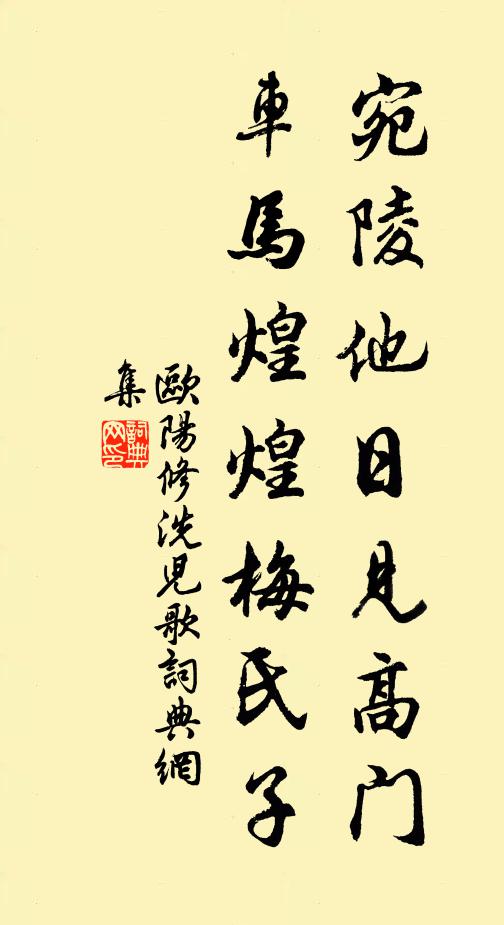 宛陵他日見高門
車馬煌煌梅氏子
歐陽修洗兒歌詞典網
集
詞典
网印